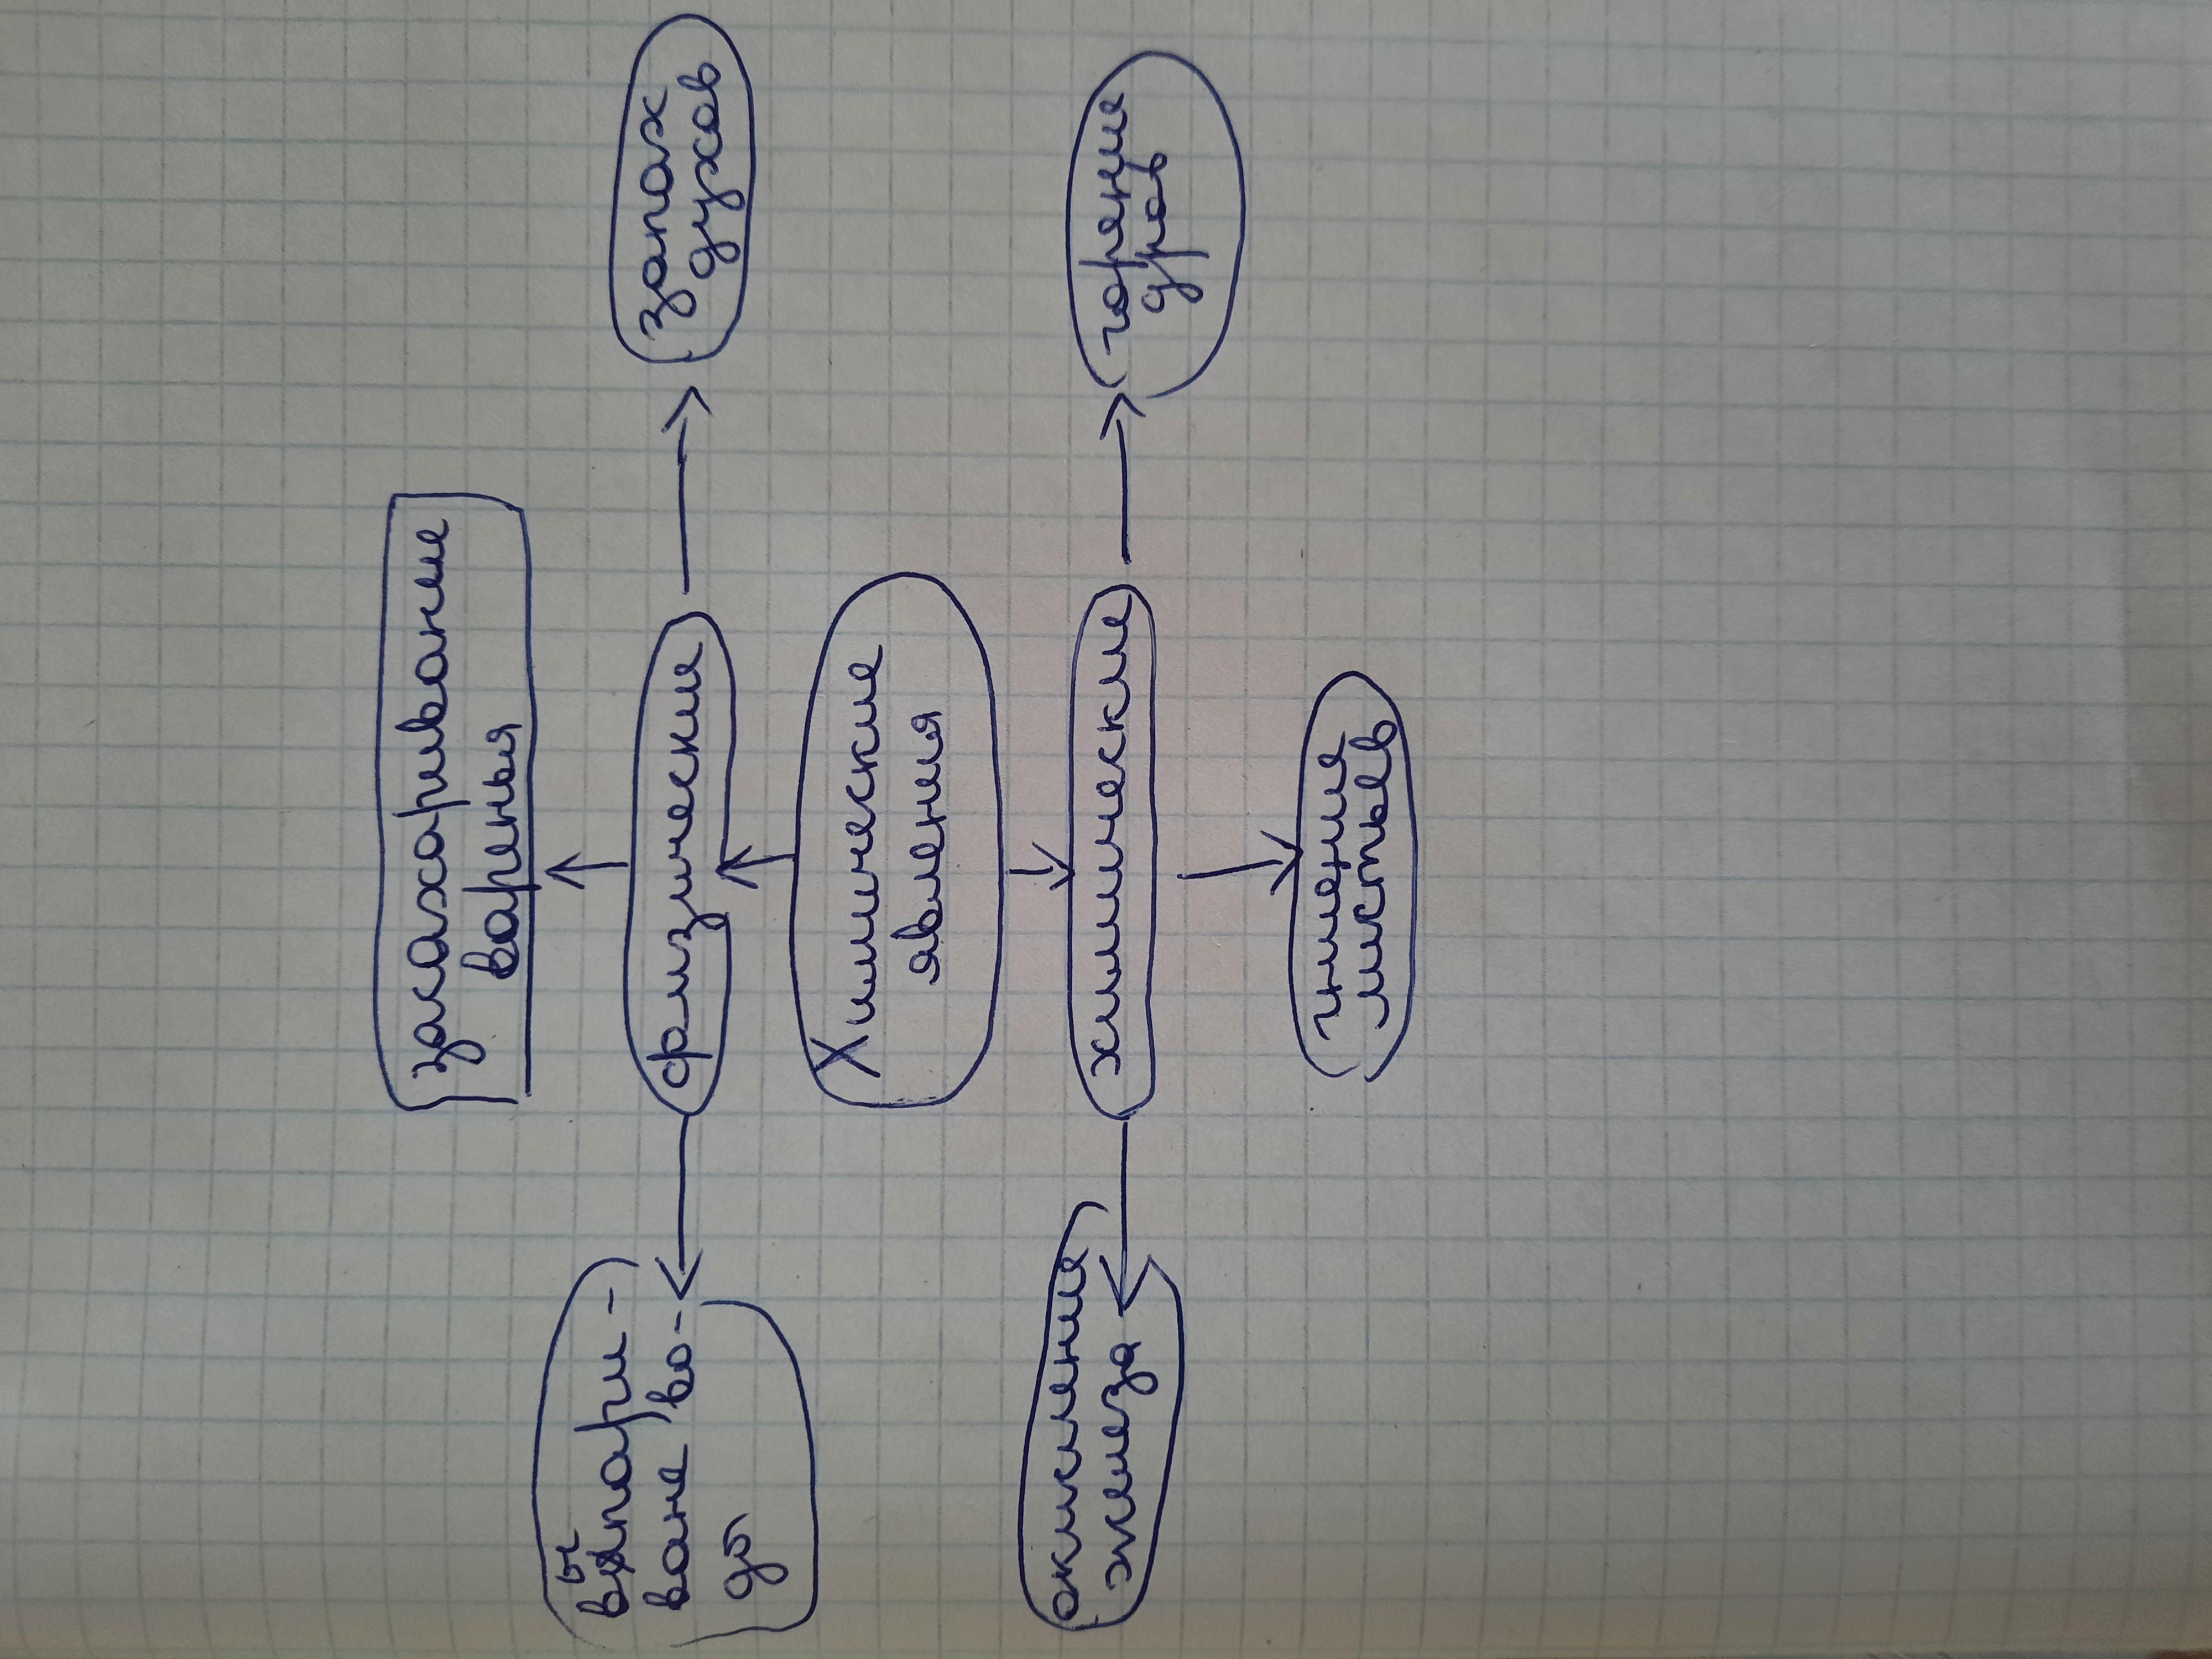 засахаривание
варенья
физические
запах
духов
выпари-
ване во-
ды
Химические
явления
химические
горение
дров
окисление
железа
гниение
листьев